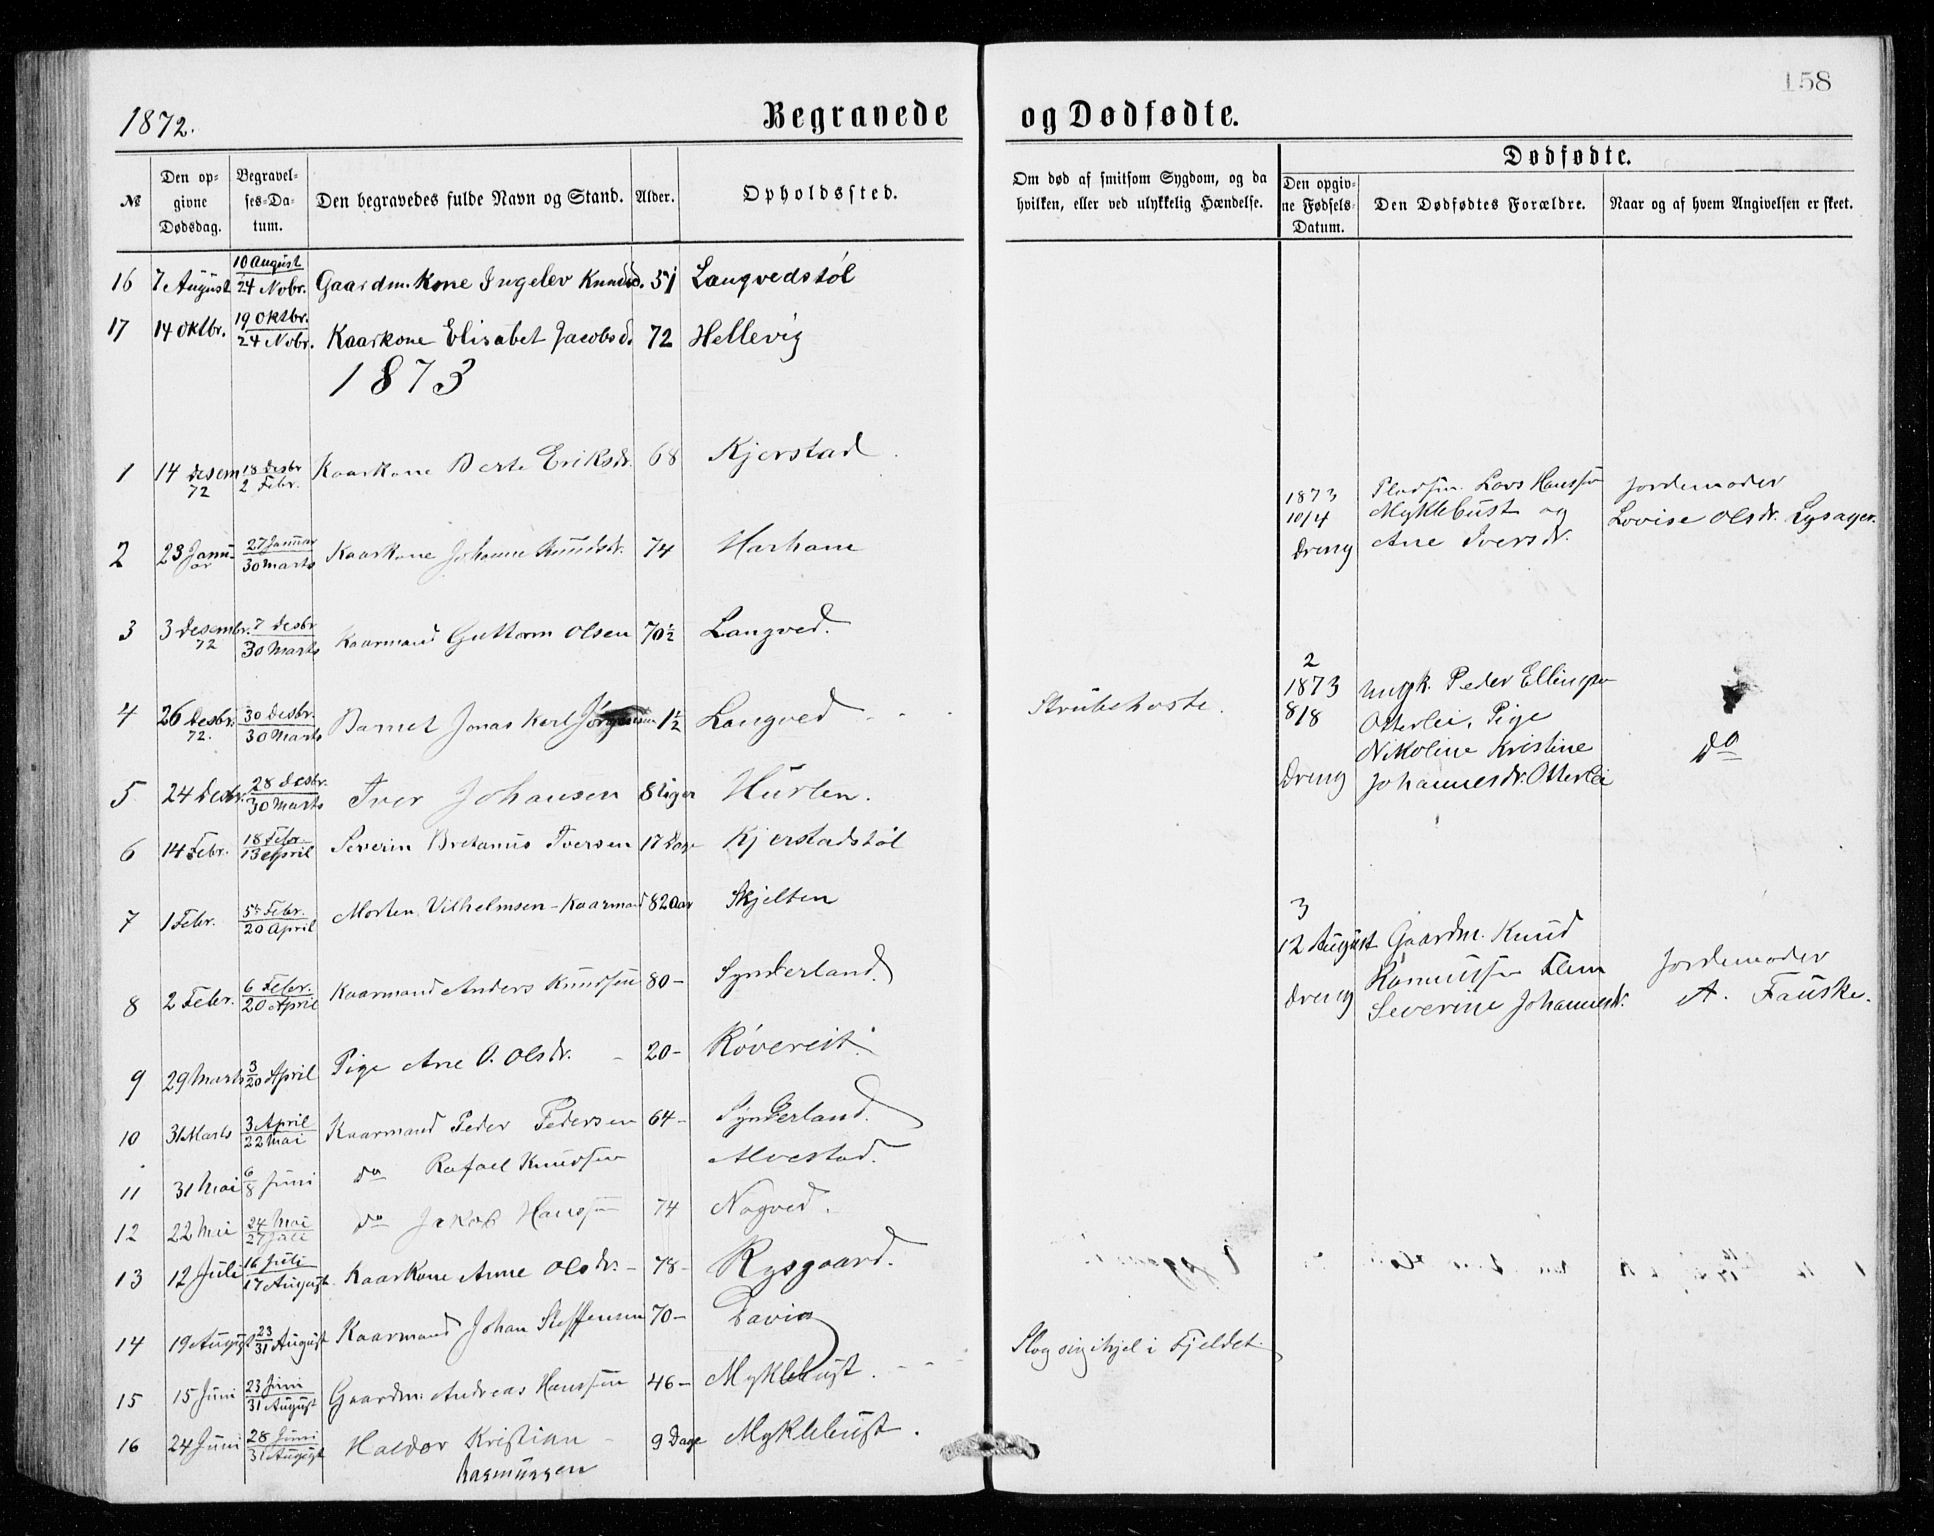 158
1872.
Begravede og Dødfødte.
Dødfødte.
№
Den op-
givne
Dødsdag.
Begravel-
ses-Da-
tum.
Den begravedes fulde Navn og Stand.
Alder.
Opholdssted.
Om død af smitsom Sygdom, og da
hvilken, eller ved ulykkelig Hændelse.
Den opgiv-
ne Fødsels-
Datum.
Den Dødfødtes Forældre.
Naar og af hvem Angivelsen er skeet.
16 7 August 10 August 24 Nobr. Gaardm. Kone Ingelev Knudsd. 51 Langvedstøl
17 14 Oktbr. 19 Oktbr. 24 Nobr. Kaarkone Elisabet Jacobsd. 72 Hellevig
1873
1 14 desem 72 18 desbr 2 Febr. Kaarkone Berte Eriksdr. 68 Kjerstad
2 23 Janu- ar 27 Januar 30 Marts Kaarkone Johanne Knudsdr. 74 Harham
3 3 desembr. 72 7 desbr 30 Marts Kaarmand Guttorm Olsen 70½ Langved.
4 26 desbr. 72. 30 desbr. 30 Marts Barnet Jonas Karl Jørgensen 1½ Langved - - Strubehoste.
5 24 desbr. 28 desbr. 30 Marts Iver Johansen 8 Uger Hurlen.
6 14 Febr. 18 Febr. 13 April Severin Bretanus Iversen 17 Dage Kjerstadstøl
7 1 Febr. 5te Febr. 20 April Morten Vilhelmsen - Kaarmand 82 Aar Skjelten
8 2 Febr. 6 Febr. 20 April Kaarmand Anders Knudsen 80 - Synderland.
9 29 Marts 3 20 April Pige Ane O. Olsdr. - 20 - Røvereit.
10 31 Marts 3 April 22 Mai Kaarmand Peder Pedersen 64 - Synderland.
11 31 Mai 6 8 Juni do Rafael Knudsen Alvestad.
12 22 Mai 24 Mai 27 Juli do Jakob Hanssen 74 Nogved.
13 12 Juli 16 Juli 17 August Kaarkone Anne Olsdr. - 78 - Rysgaard.
14 19 August 23 31 August Kaarmand Johan Steffensen 70 - Davik
15 15 Juni 23 Juni 31 August Gaardm. Andreas Hanssen 46 - Myklebust. - - Slog sig ihjel i Fjeldet.
16 24 Juni 28 Juni 31 August Haldor Kristian - 9 Dage Myklebust.
Rasmussen
1873
10/4
dreng
Pladsm. Lars Hanssen
Myklebust og
Ane Iversdr.
Jordemoder
Lovise Olsdr. Lysager.
2
1873
8/8
dreng
Ungk. Peder Ellingsen
Otterlei, Pige
Nikoline Kristine
Johannesdr. Otterlei
do
3
12 August
dreng
Gaardm. Knud
Rasmussen Flem
Severine Johannesdr.
Jordemoder
A. Fauske.